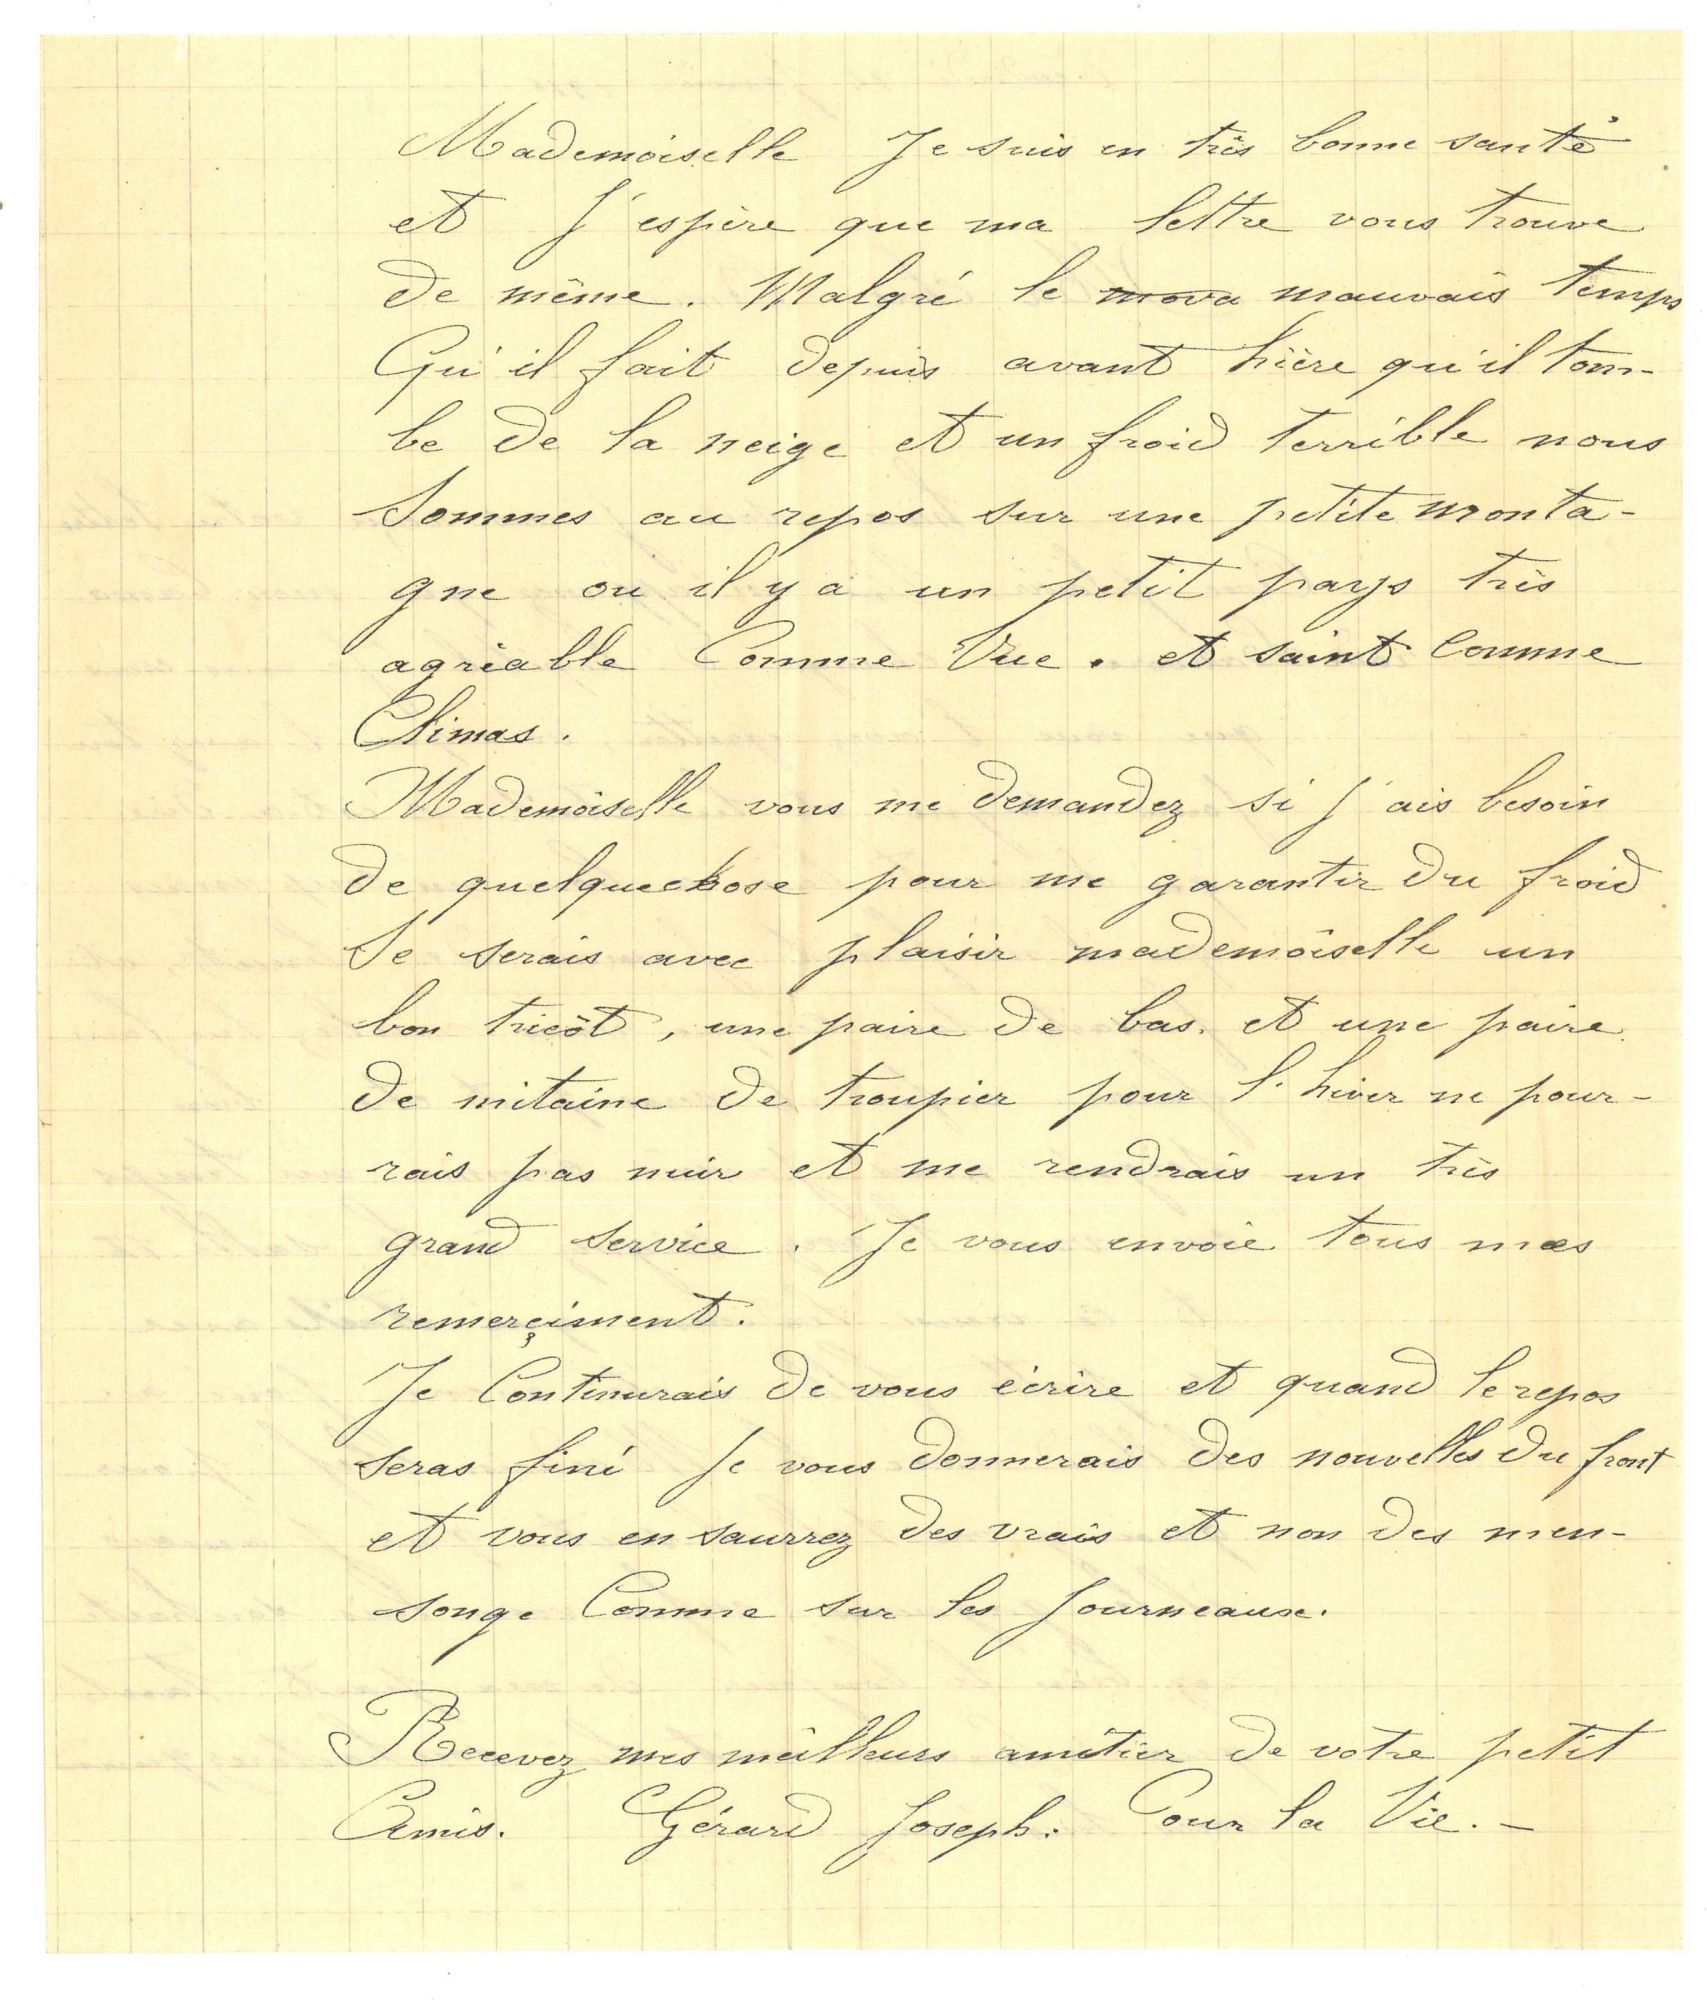 Mademoiselle Je suis en très bonne santé
et J'espère que ma lettre vous trouve
de même. Malgré le mova mauvais temps
Qu'il fait depuis avant hière qu'il tom-
be de la neige et un froid terrible nous
Sommes au repos sur une petite monta-
gne ou il y a un petit pays très
agréable Comme Vue. et saint Comme
Climas.
Mademoiselle vous me demandez si J'ais besoin
de quelquechose pour me garantir du froid
Se serais avec plaisir mademoiselle un
bon tricôt, une paire de bas. et une paire
de mitaine de troupier pour l'hiver ne pour-
rais pas nuir et me rendrais un très
grand service. Je vous envoie tous mes
remerçiment.
Je Continurais de vous écrire et quand le repos
seras finé Je vous donnerais des nouvelles du front
et vous en saurrez des vrais et non des men-
songe Comme sur les Journeaux.
Recevez mes meilleurs amitier de votre petit
Amis. Gérard Joseph. Pour la Vie. -